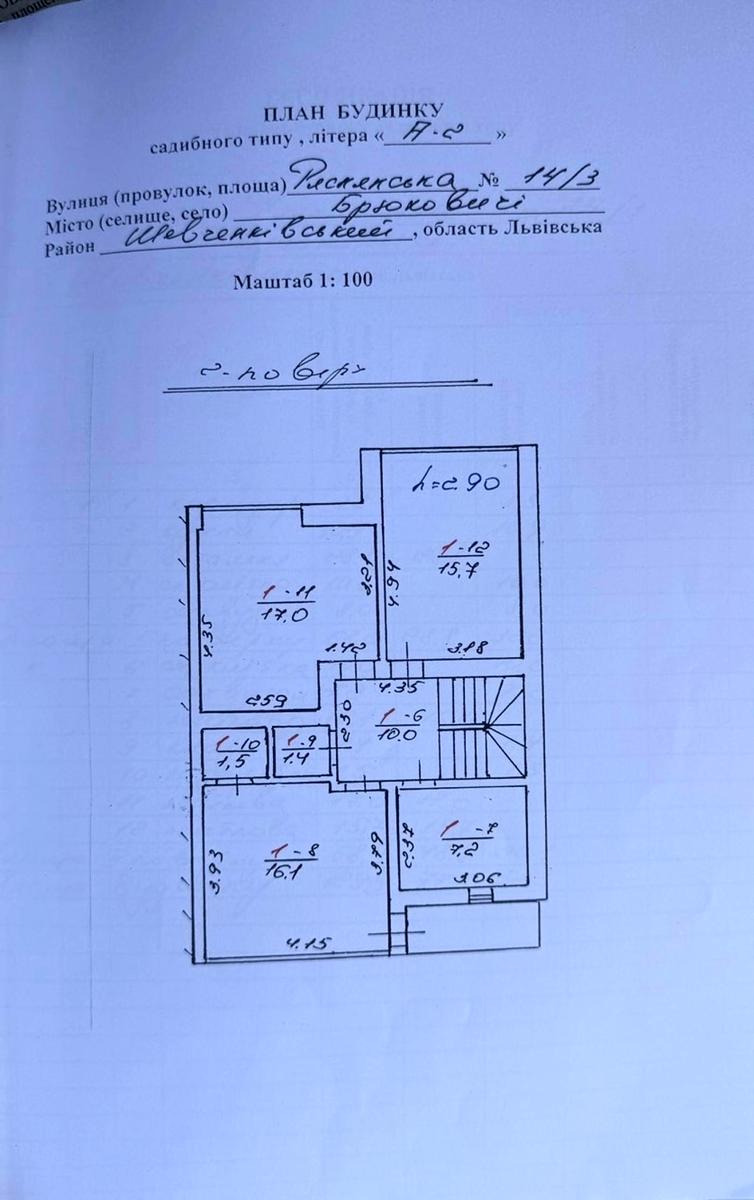 ПЛАН БУДИНКУ
садибного типу , літера « А-2 »
Вулиця (провулок, площа) Ряснянська № 14/3
Місто (селище, село) Брюховичі
Район Шевченківський , область Львівська
Маштаб 1: 100
2-поверх
h=2.90
1-12
15,7
4.94
3.18
1-11
17,0
3.21
4.35
1.42
2.59
4.35
2.30
1-6
10.0
1-10
1,5
1-9
1.4
1-8
16,1
3.93
3.79
4.15
1-7
7,2
2.37
3.06